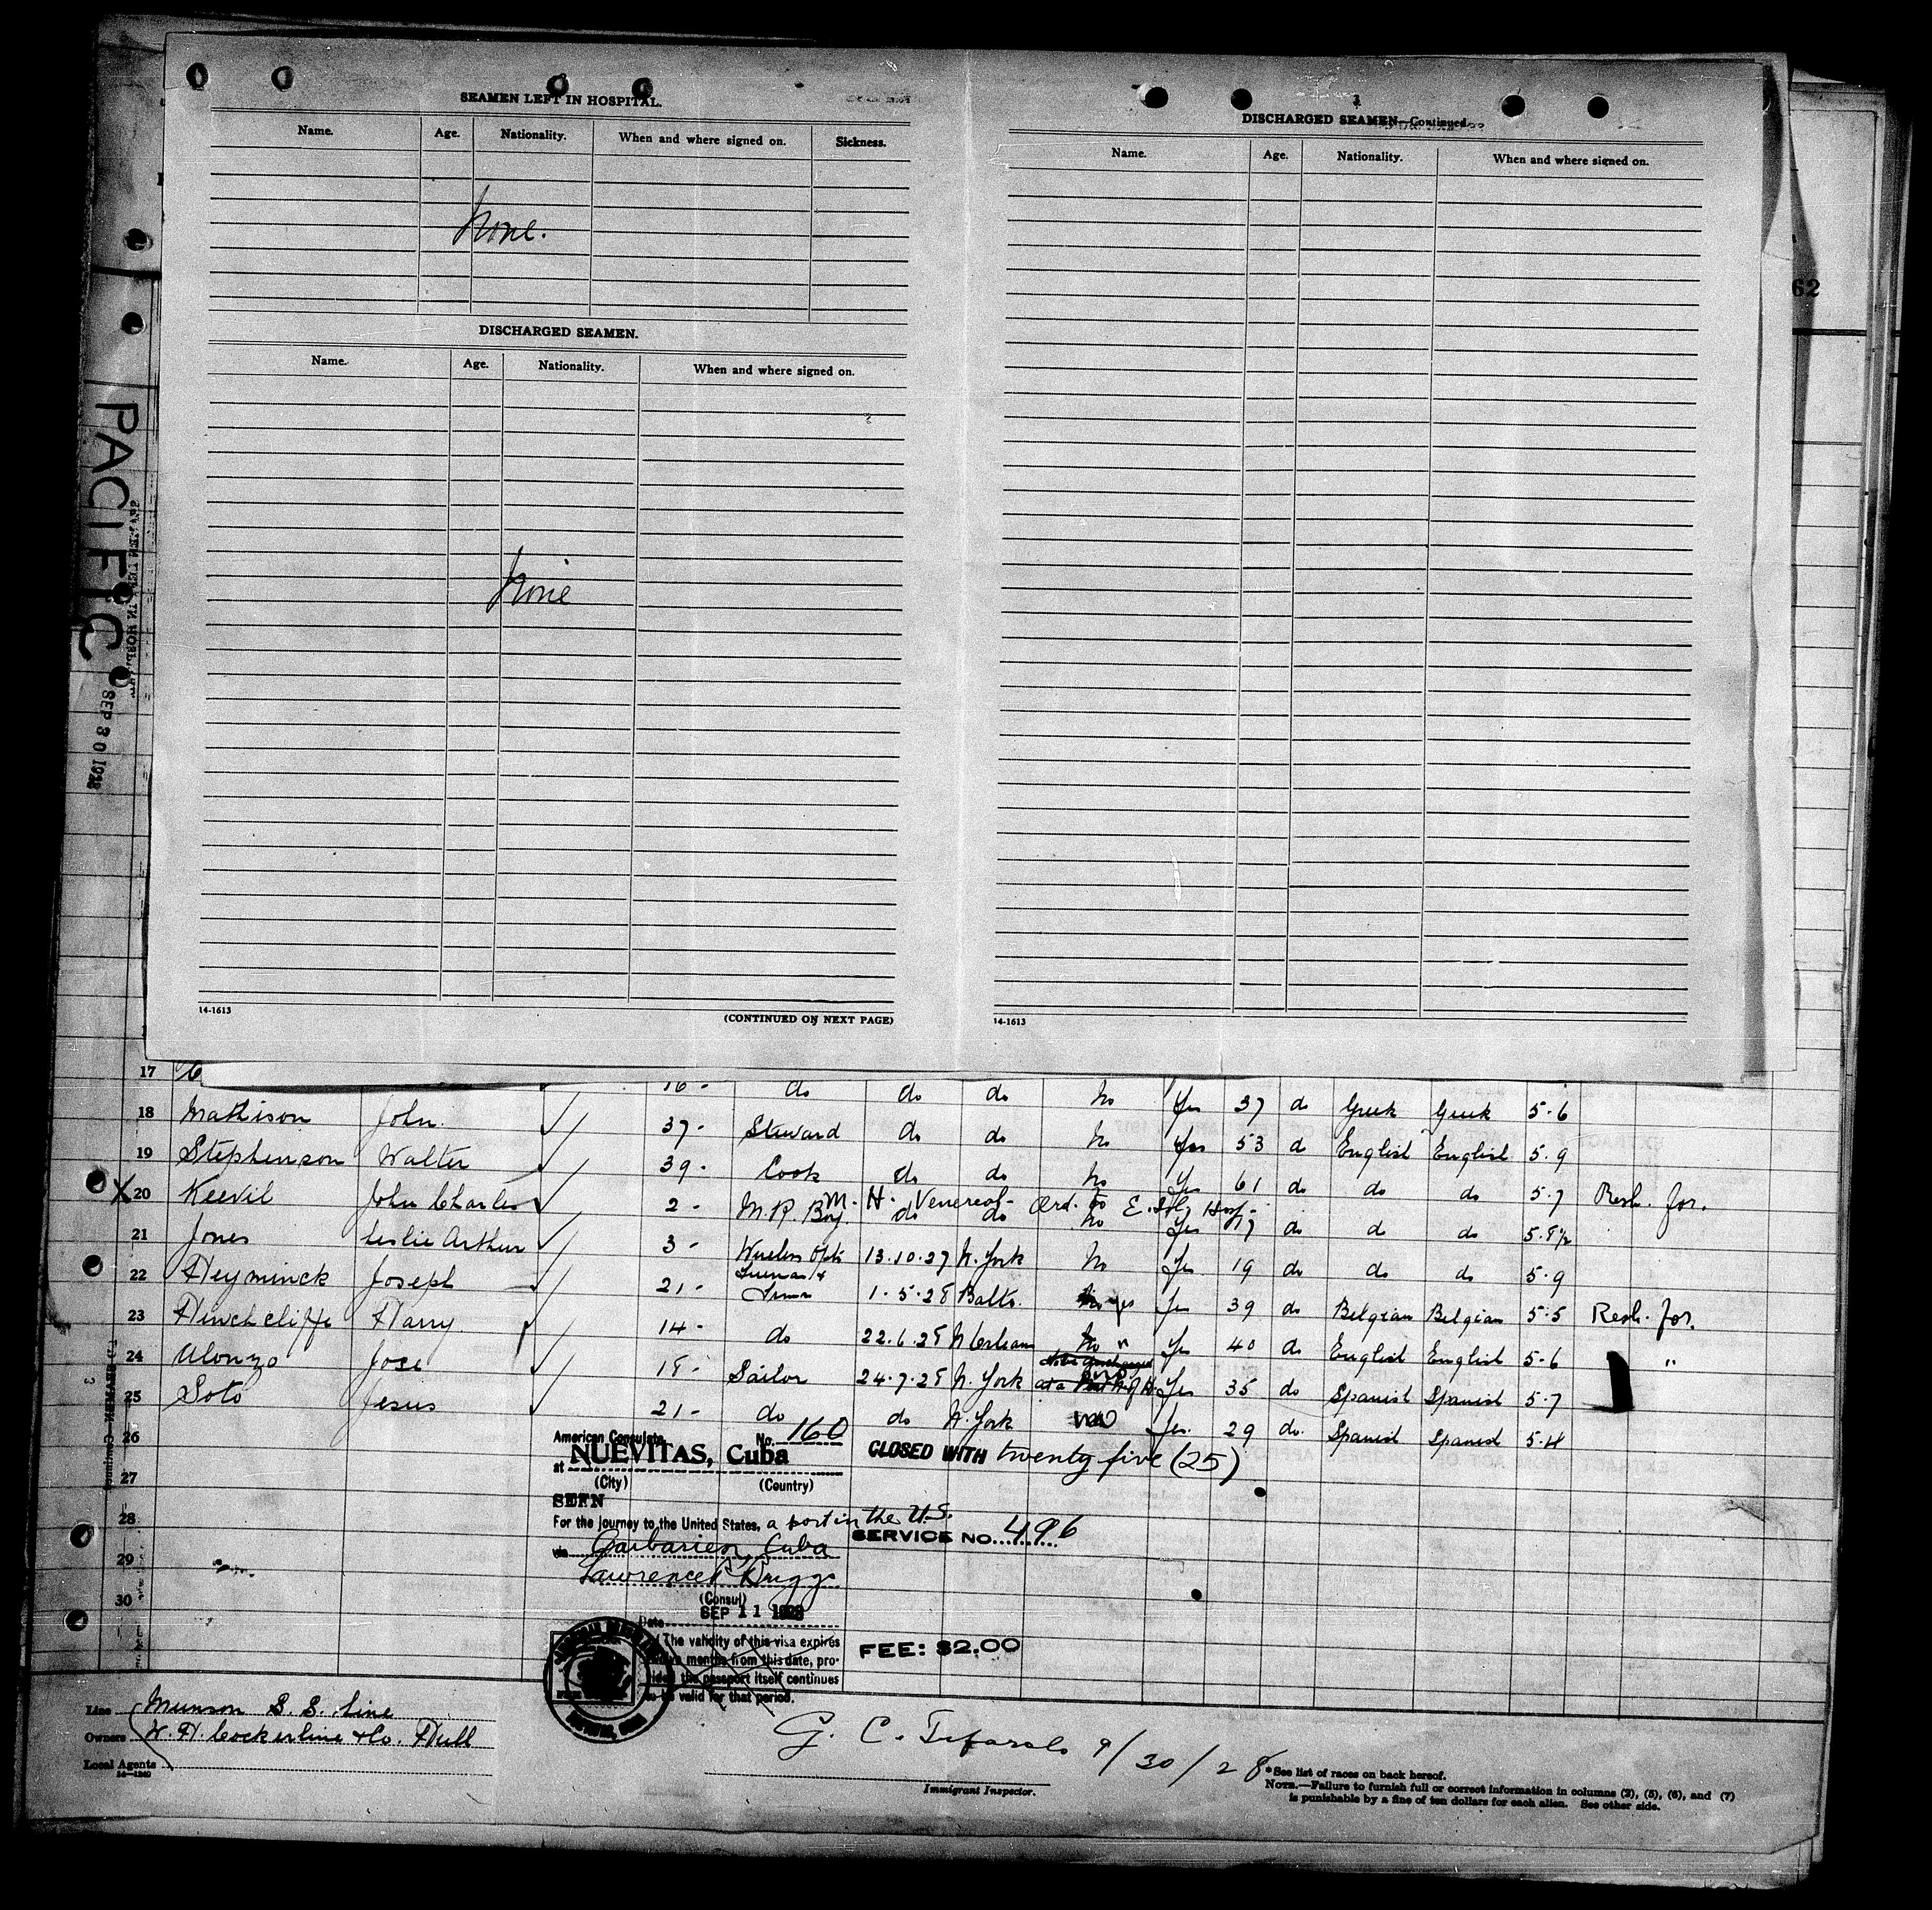 SEAMEN LEFT IN HOSPITAL.
Name. Age. Nationality. When and where signed on. Sickness.
None.
DISCHARGED SEAMEN.
Name. Age. Nationality. When and where signed on.
None
14-1613
(CONTINUED ON NEXT PAGE)
3
DISCHARGED SEAMEN—Continued.
Name. Age. Nationality. When and where signed on.
14-1613
62
PACIFIC
SEP 30 1928
17 16 - do do do No Yes 37 do Greek Greek 5-6
18 Mathison John 37 - Steward do do No Yes 53 do English English 5-9
19 Stephenson Walter 39 - Cook do do No Yes 61 do do do 5-7 Resh. for.
M. H. Venereal - Ord. to E. Isl. Hosp -
X 20 Keevil John Charles 2 - M.R. Boy. do do No Yes 17 do do do 5-8½
21 Jones Leslie Arthur 3 - Wireless Optr 13.10.27 N. York No Yes 19 do do do 5-9
22 Heyminck Joseph 21 - Fireman & Trimr 1-5-28 Balto. yes Yes 39 do Belgian Belgian 5-5 Resh. for.
23 Hinchcliffe Harry 14 - do 22.6.28 N Orleans No " Yes 40 do English English 5-6 "
24 Alonzo Jose 18 - Sailor 24-7-28 N. York Yes 35 do Spanish Spanish 5-7
25 Soto Jesus 21 - do do N. York Yes 29 do. Spanish Spanish 5-4
26
27
28
29
30
American Consulate No. 160
at NUEVITAS, Cuba
(City) (Country)
CLOSED WITH twenty five (25)
SEEN
For the journey to the United States, a port in the U.S.
via Caibarien, Cuba
SERVICE NO. 496
Lawrence P. Briggs
(Consul)
Date SEP 11 1928
The validity of this visa expires
twelve months from this date, pro-
vided the passport itself continues
to be valid for that period.
FEE: $2.00
Line Munson S. S. Line
Owners W. H. Cockerline & Co. Hull
Local Agents
14-1240
G. C. 9/30/28
Immigrant Inspector.
*See list of races on back hereof.
NOTE.—Failure to furnish full or correct information in columns (2), (5), (6), and (7)
is punishable by a fine of ten dollars for each alien. See other side.